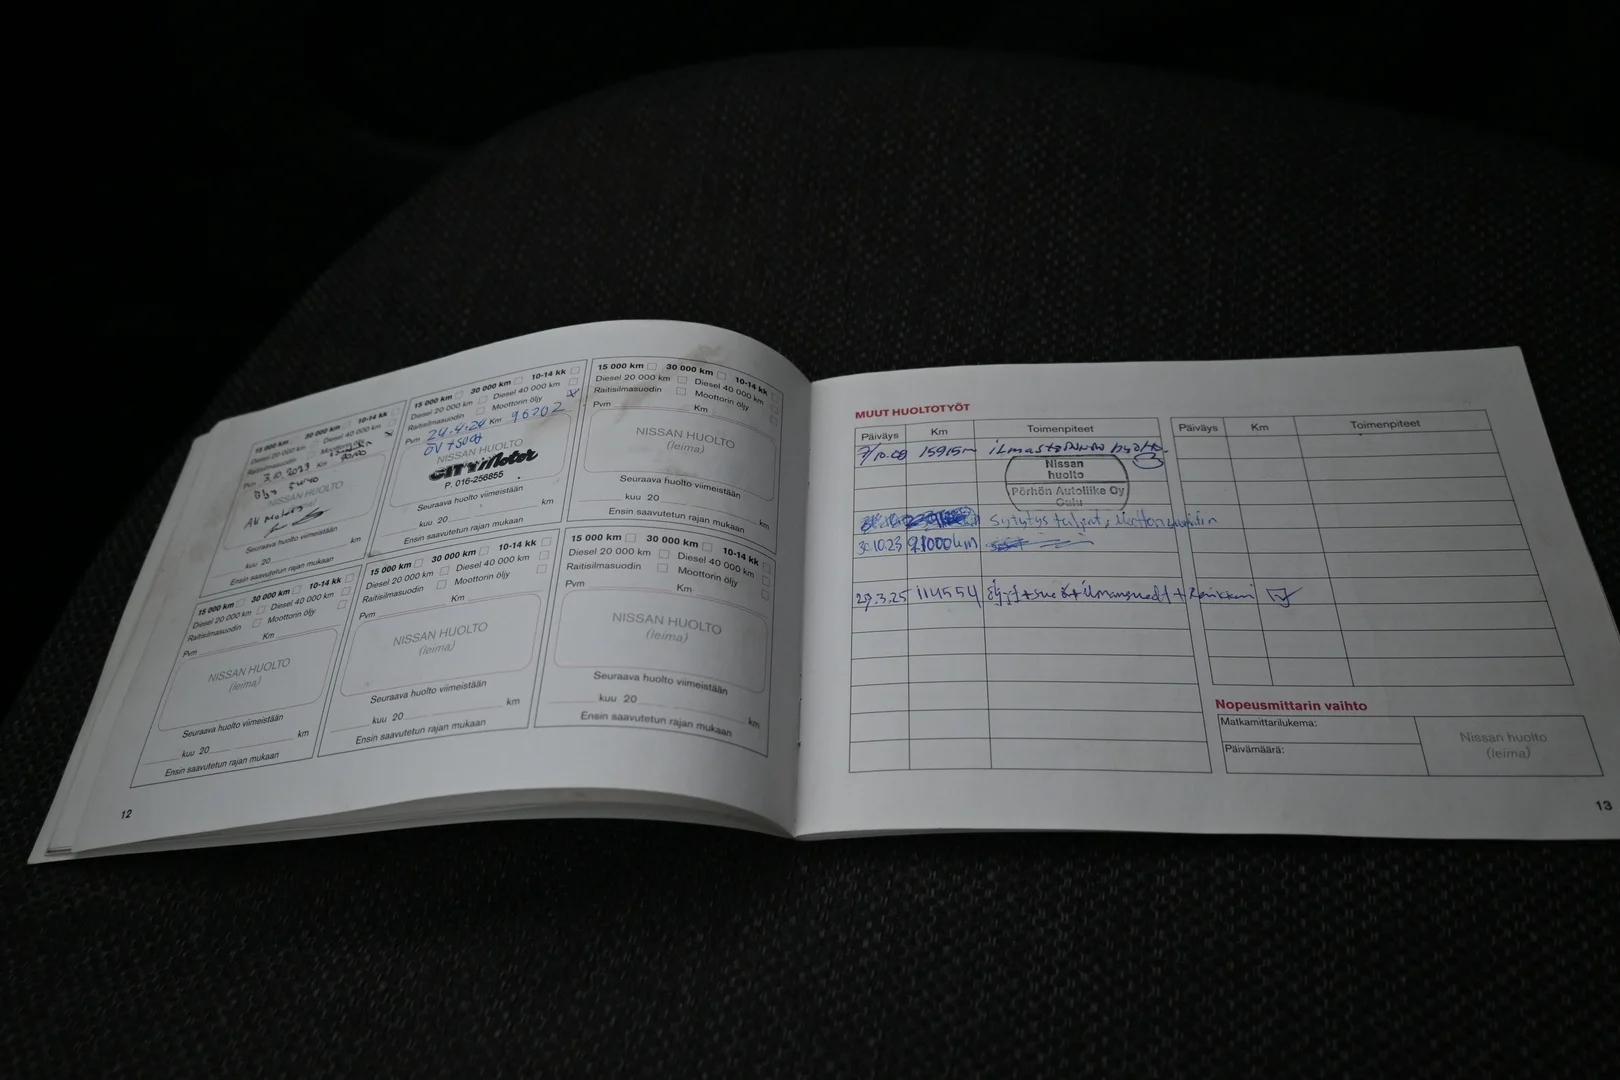 15 000 km 30 000 km 10-14 kk
Diesel 20 000 km Diesel 40 000 km
Raitisilmasuodin Moottorin öljy
Pvm 3.10.2023 Km
Öljy 5W40
NISSAN HUOLTO
Seuraava huolto viimeistään
km
kuu 20
Ensin saavutetun rajan mukaan
15 000 km 30 000 km 10-14 kk
Diesel 20 000 km Diesel 40 000 km
Raitisilmasuodin Moottorin öljy
Pvm 24.4.24 Km 96202
NISSAN HUOLTO
CITYMotor
P. 016-256855
Seuraava huolto viimeistään
km
kuu 20
Ensin saavutetun rajan mukaan
15 000 km 30 000 km 10-14 kk
Diesel 20 000 km Diesel 40 000 km
Raitisilmasuodin Moottorin öljy
Pvm Km
NISSAN HUOLTO
(leima)
Seuraava huolto viimeistään
kuu 20 km
Ensin saavutetun rajan mukaan
15 000 km 30 000 km 10-14 kk
Diesel 20 000 km Diesel 40 000 km
Raitisilmasuodin Moottorin öljy
Pvm Km
NISSAN HUOLTO
(leima)
Seuraava huolto viimeistään
kuu 20 km
Ensin saavutetun rajan mukaan
15 000 km 30 000 km 10-14 kk
Diesel 20 000 km Diesel 40 000 km
Raitisilmasuodin Moottorin öljy
Pvm Km
NISSAN HUOLTO
(leima)
Seuraava huolto viimeistään
kuu 20 km
Ensin saavutetun rajan mukaan
15 000 km 30 000 km 10-14 kk
Diesel 20 000 km Diesel 40 000 km
Raitisilmasuodin Moottorin öljy
Pvm Km
NISSAN HUOLTO
(leima)
Seuraava huolto viimeistään
kuu 20 km
Ensin saavutetun rajan mukaan
12
MUUT HUOLTOTYÖT
Päiväys Km Toimenpiteet
7/10.08
Nissan
huolto
Pörhön Autoliike Oy
Oulu
Sytytys tulpat,
30.10.23 91000km
29.3.25 114554
Päiväys Km Toimenpiteet
Nopeusmittarin vaihto
Matkamittarilukema:
Päivämäärä:
Nissan huolto
(leima)
13